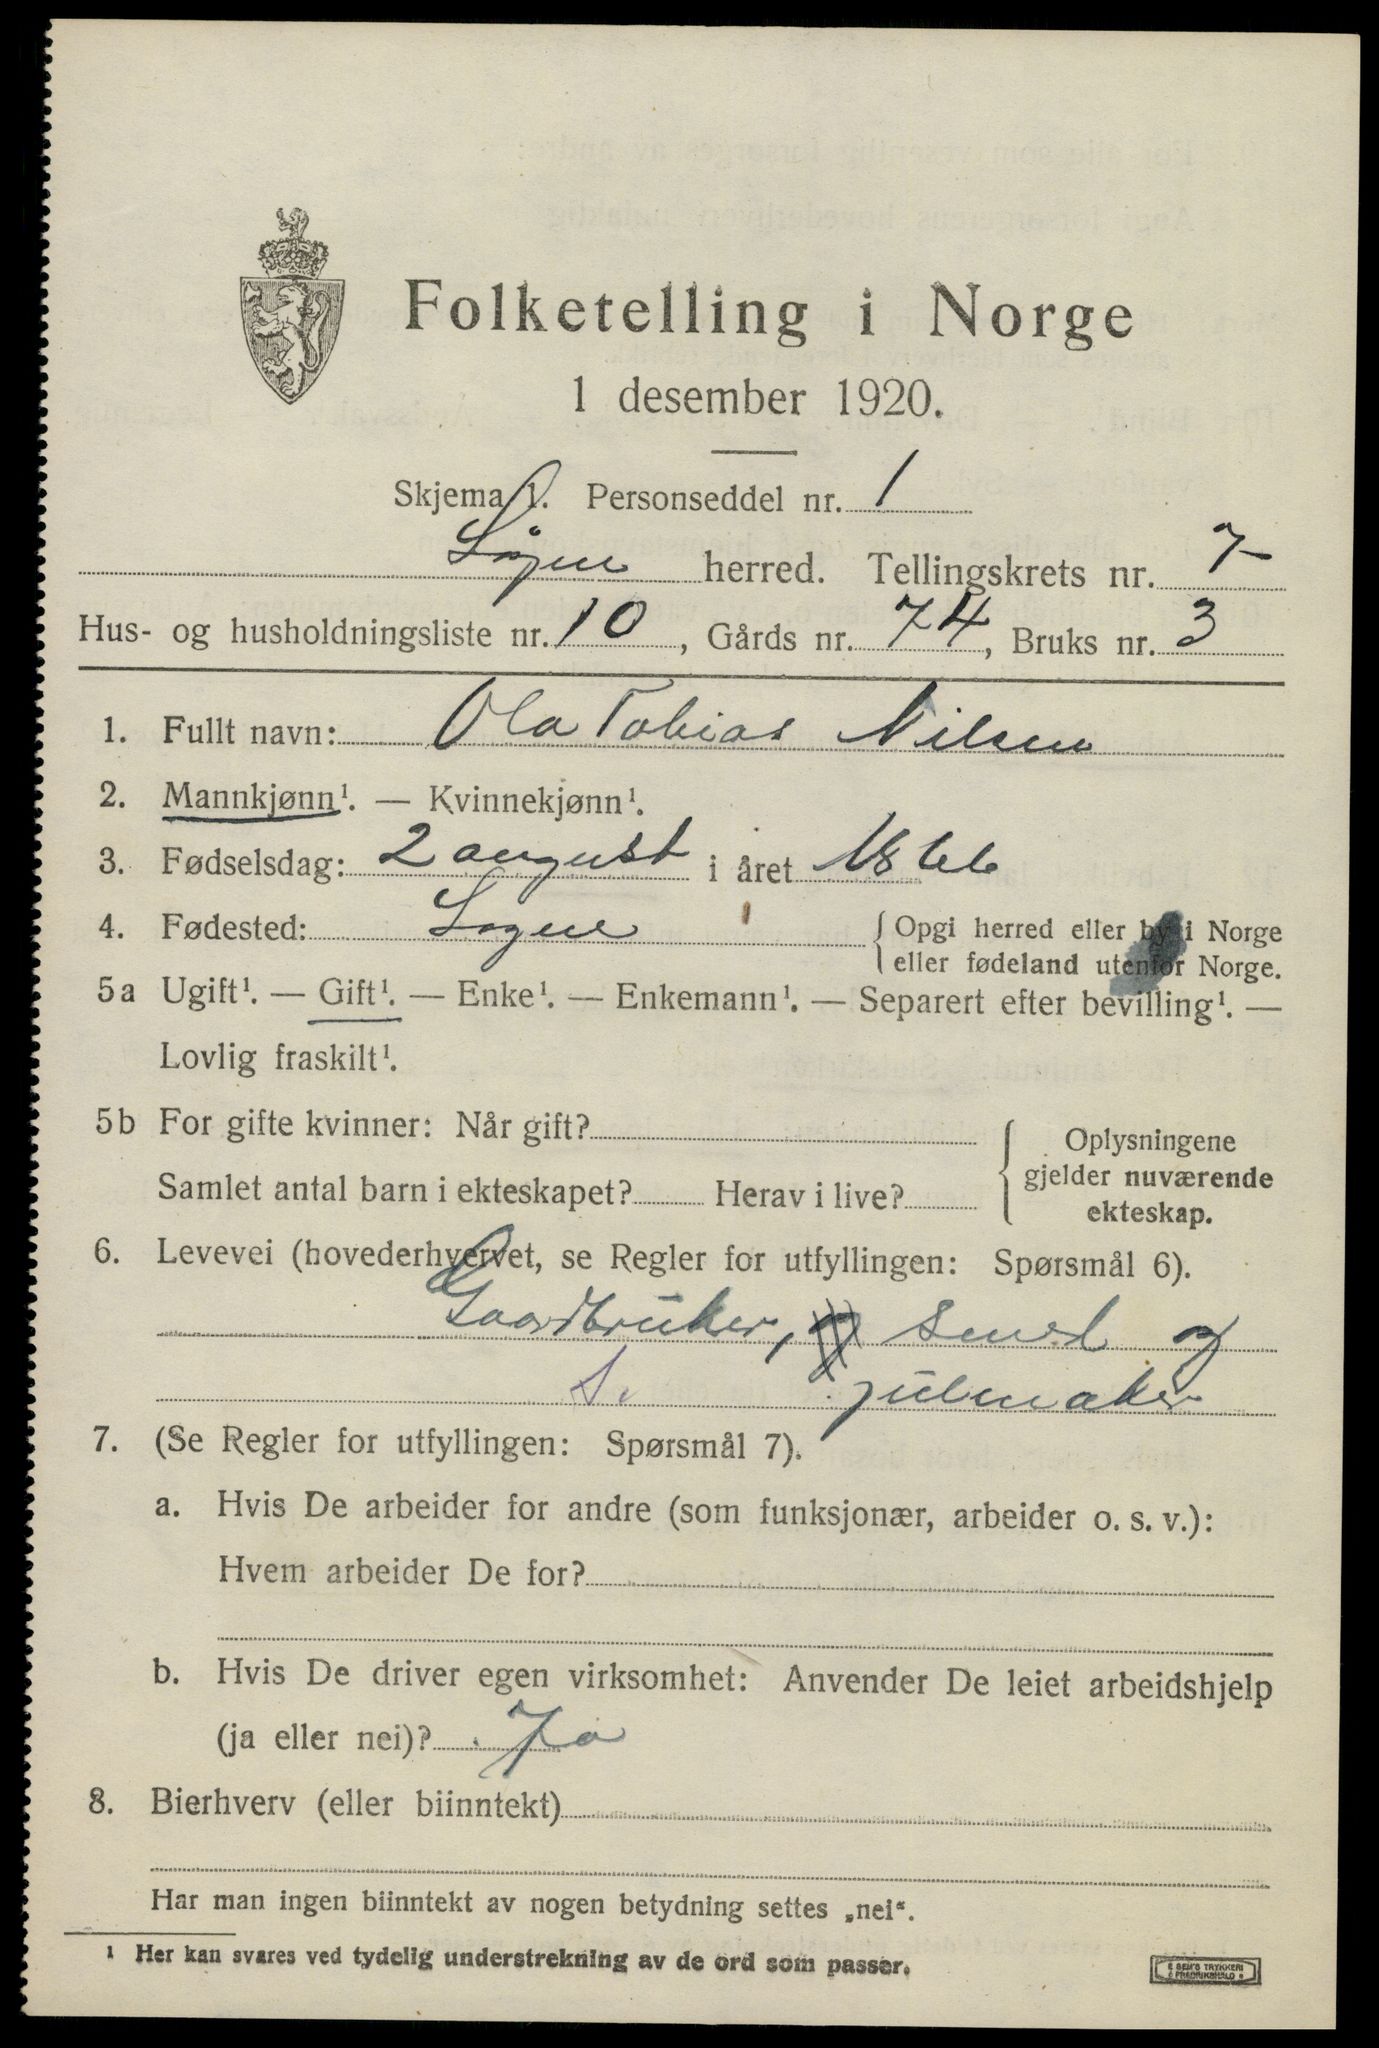 Folketelling i Norge
1 desember 1920.
Skjema 1. Personseddel nr. 1
Søgne herred. Tellingskrets nr. 7
Hus- og husholdningsliste nr. 10, Gårds nr. 74, Bruks nr. 3
1. Fullt navn: Ola Tobias Nilsen
2. Mannkjønn¹. — Kvinnekjønn¹.
3. Fødselsdag: 2 august i året 1866
4. Fødested: Sogne { Opgi herred eller by i Norge
eller fødeland utenfor Norge.
5a Ugift¹. — Gift¹. — Enke¹. — Enkemann¹. — Separert efter bevilling¹. —
Lovlig fraskilt¹.
5b For gifte kvinner: Når gift? { Oplysningene
gjelder nuværende
Samlet antal barn i ekteskapet? Herav i live?
ekteskap.
6. Levevei (hovederhvervet, se Regler for utfyllingen: Spørsmål 6).
Gaardbruker, Smed og
S. julmaker
7. (Se Regler for utfyllingen: Spørsmål 7).
a. Hvis De arbeider for andre (som funksjonær, arbeider o. s. v.):
Hvem arbeider De for?
b. Hvis De driver egen virksomhet: Anvender De leiet arbeidshjelp
(ja eller nei)? Ja
8. Bierhverv (eller biinntekt)
Har man ingen biinntekt av nogen betydning settes „nei“.
¹ Her kan svares ved tydelig understrekning av de ord som passer.
E SEM'S TRYKKERI
FREDRIKSHALD